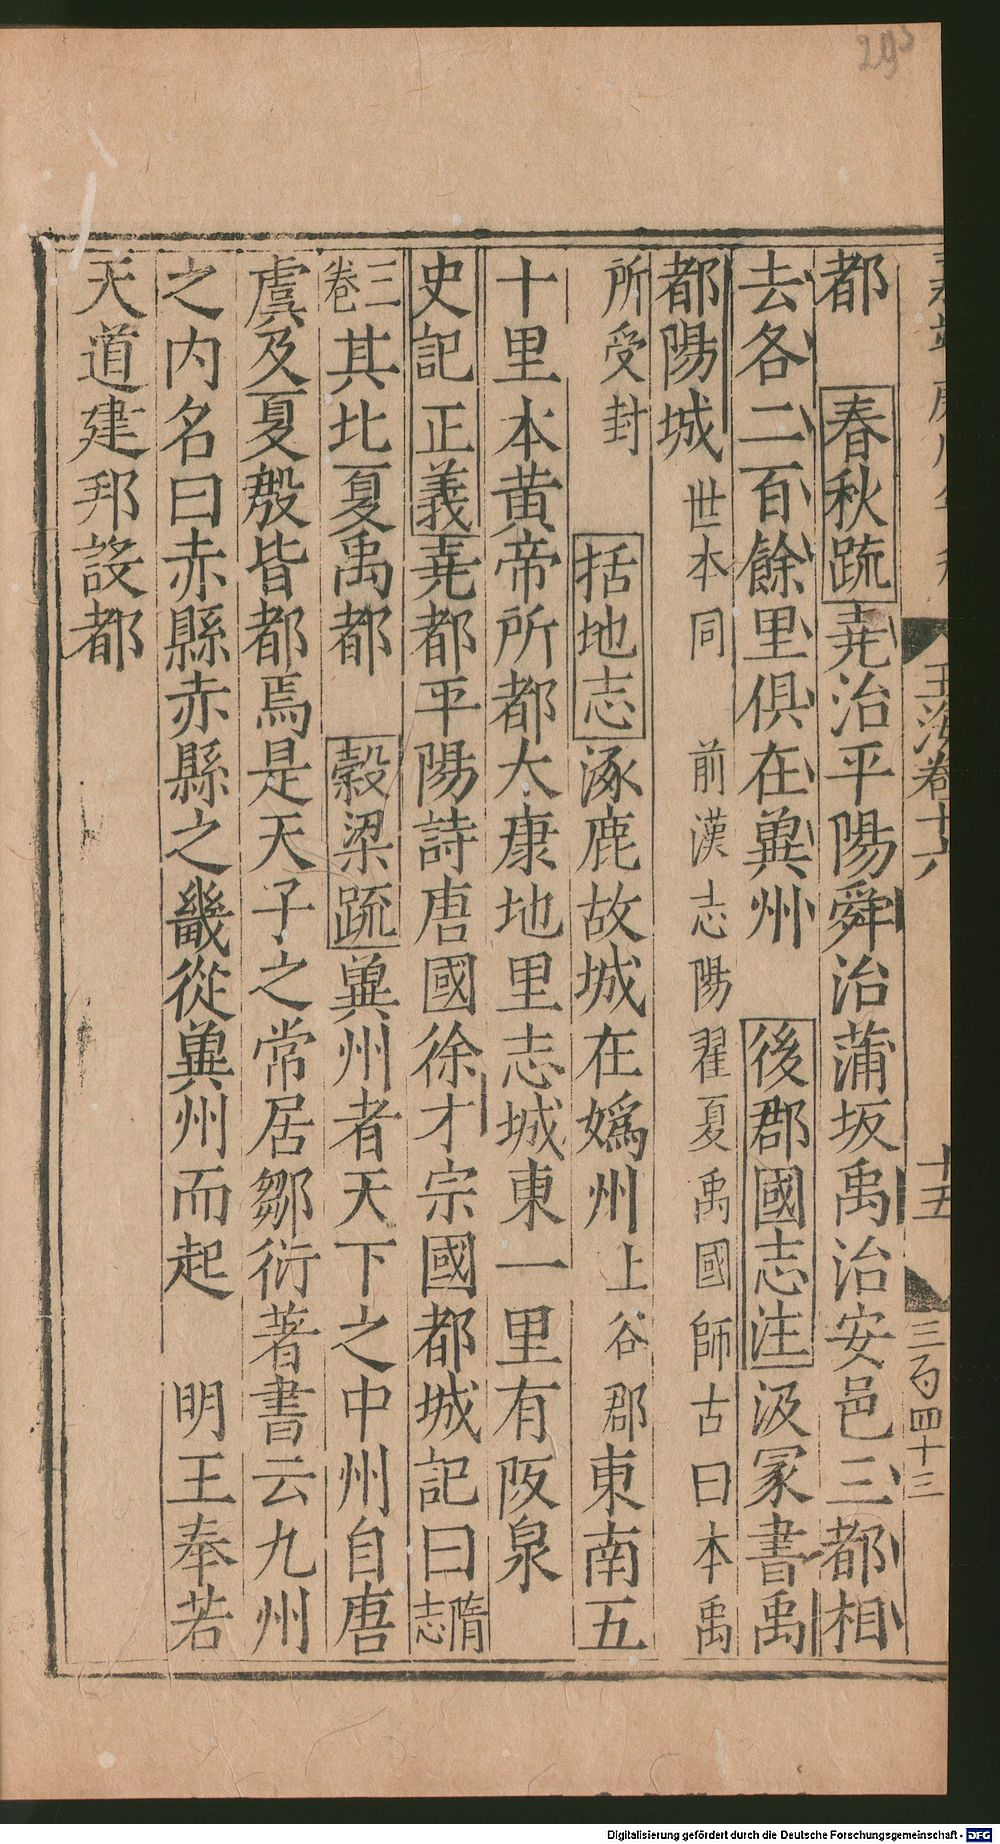 295
玉海卷十六
十五
三百四十三
都　春秋疏堯治平陽舜治蒲坂禹治安邑三都相
去各二百餘里俱在兾州　後郡國志注汲冢書禹
都陽城世本同　前漢志陽翟夏禹國師古曰本禹
所受封　括地志涿鹿故城在媯州上谷郡東南五
十里本黄帝所都大康地里志城東一里有阪泉
史記正義堯都平陽詩唐國徐才宗國都城記曰隋志
三卷其北夏禹都　穀梁疏兾州者天下之中州自唐
虞及夏殷皆都焉是天子之常居鄒衍著書云九州
之内名曰赤縣赤縣之畿從兾州而起　明王奉若
天道建邦設都
Digitalisierung gefördert durch die Deutsche Forschungsgemeinschaft - DFG